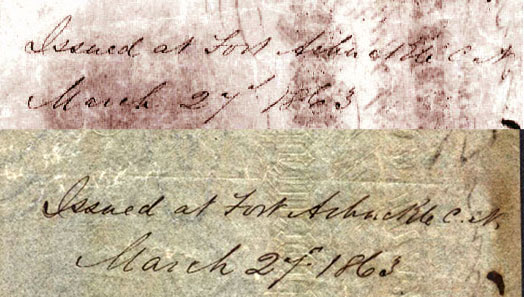 Issued at Fort Arbuckle C. N.
March 27th 1863
Issued at Fort Arbuckle C. N.
March 27th 1863